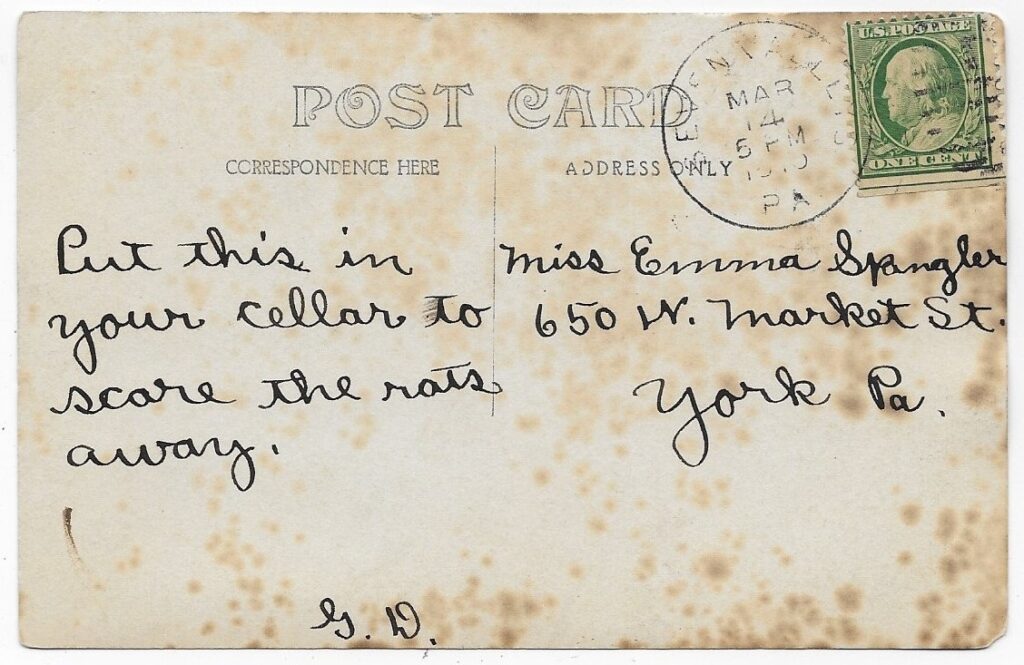 POST CARD
CORRESPONDENCE HERE
ADDRESS ONLY
SEVEN VALLEYS
MAR
14
5 PM
1910
PA
U.S. POSTAGE
ONE CENT
Put this in
your cellar to
scare the rats
away.
G. D.
Miss Emma Spangler
650 W. Market St.
York Pa.